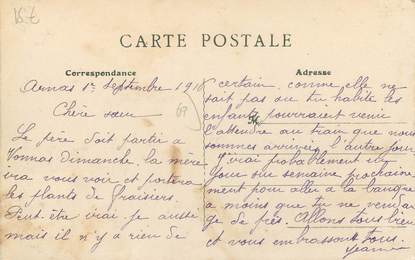 CARTE POSTALE
Correspondance
Arnas 1r Septembre 1910
Chère sœur
Le père doit partir
Vonnas Dimanche, la mère
ira vous voir et portera
les plants de fraisiers.
Peut-être irai je aussi
mais il n'y a rien de
Adresse
certain, comme elle ne
sait pas où tu habite les
enfants pourraient venir
l'attendre au train que nous
sommes arrivés l'autre jour
J'irai probablement un
jour une semaine prochaine
ment pour aller a la banque
a moins que tu ne vendan
ge de près. Allons tous bien
et vous embrassons tous.
Jeanne
69